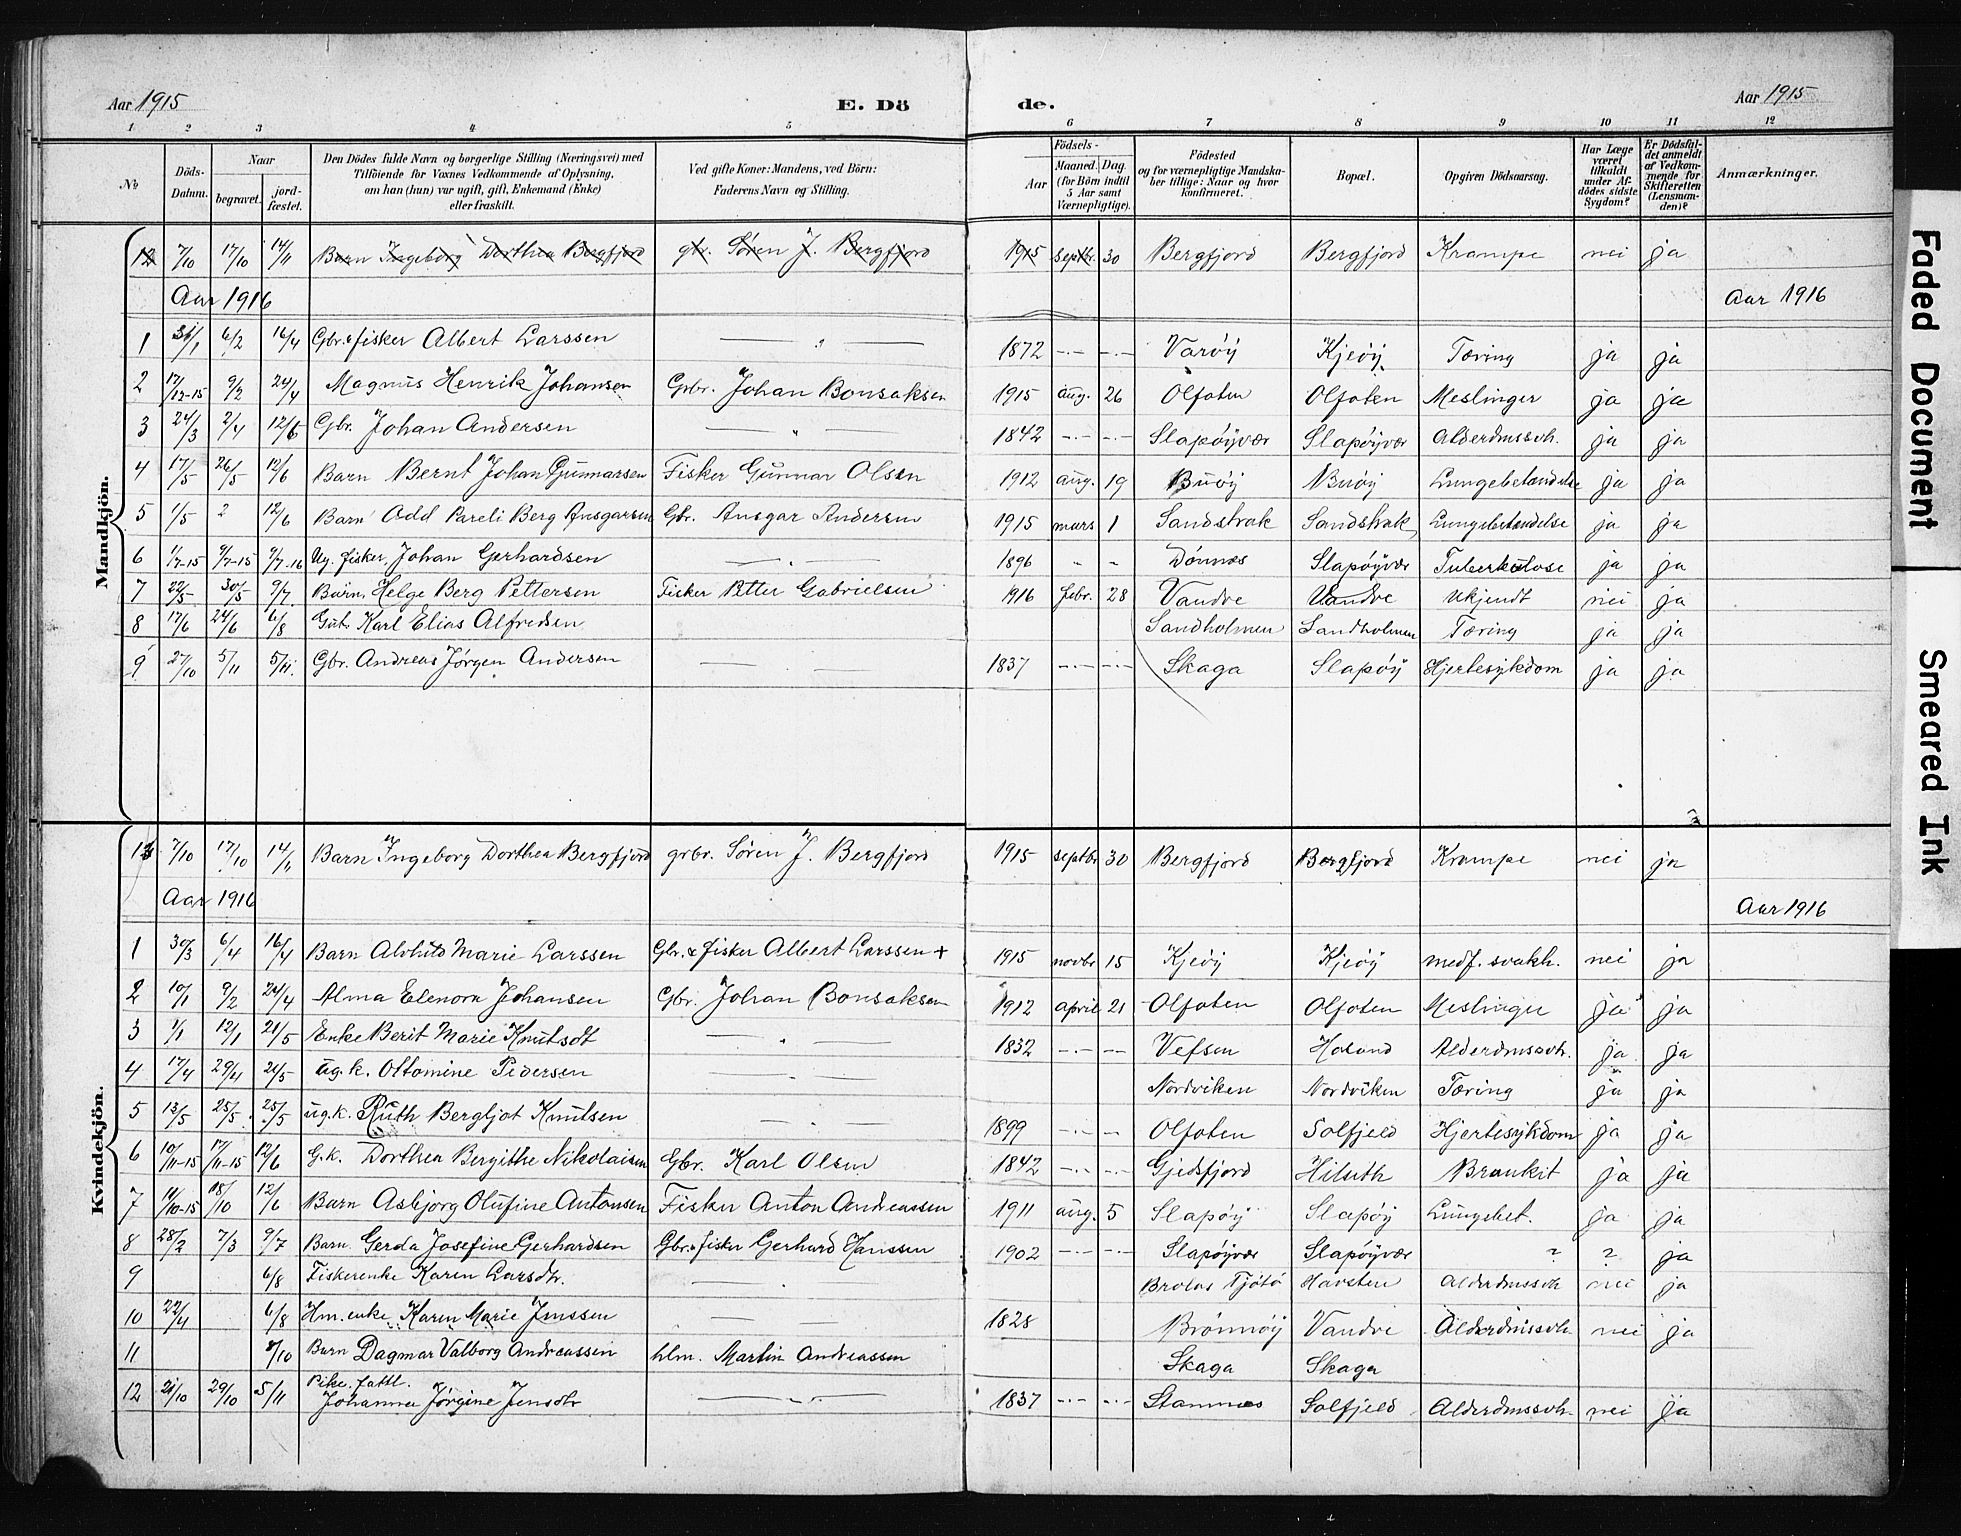 Aar 1915 E. Dö de. Aar 1915
1 2 3 4 5 6 7 8 9 10 11 12
No Döds-Datum. Naar begravet. jord-fæstet. Den Dödes fulde Navn og borgerlige Stilling (Næringsvei) med Tilföiende for Voxnes Vedkommende af Oplysning, om han (hun) var ugift, gift, Enkemand (Enke) eller fraskilt. Ved gifte Koner: Mandens, ved Börn: Faderens Navn og Stilling. Födsels- Aar Maaned. Dag. (for Börn indtil 5 Aar samt Værnepligtige). Födested og for værnepligtige Mandskaber tillige: Naar og hvor konfirmeret. Bopæl. Opgiven Dödsaarsag. Har Læge været tilkaldt under Afdödes sidste Sygdom? Er Dödsfaldet anmeldt af Vedkommende for Skifteretten (Lensmanden)? Anmærkninger.
Mandkjön.
12 7/10 17/10 14/11 Barn Ingeborg Dorthea Bergfjord gbr. Søren J. Bergfjord 1915 septbr. 30 Bergfjord Bergfjord Krampe nei ja
Aar 1916 Aar 1916
1 31/1 6/2 16/4 Gbr. & fisker Albert Larssen — " — 1872 -.- -.- Varøy Kjeøy Tæring ja ja
2 17/12-15 9/2 24/4 Magnus Henrik Johansen Grbr. Johan Bonsaksen 1915 aug. 26 Olfoten Olfoten Meslinger ja ja
3 24/3 2/4 12/6 Gbr. Johan Andersen — " — 1842 -.- -.- Slapøyvær Slapøyvær Alderdmssvh. ja ja
4 17/5 26/5 12/6 Barn Bernt Johan Gunnarsen Fisker Gunnar Olsen 1912 aug. 19 Buøy Buøy Lungebetændelse ja ja
5 1/5 2 12/6 Barn Odd Pareli Berg Ansgarsen Gbr. Ansgar Andersen 1915 mars 1 Sandstrak Sandstrak Lungebetændelse ja ja
6 1/7-15 9/7-15 9/7-16 Ug. fisker, Johan Gerhardsen — " — 1896 " " Dønnes Slapøyvær Tuberkulose ja ja
7 22/5 30/5 9/7 Barn, Helge Berg Pettersen Fisker Petter Gabrielsen 1916 febr. 28 Vandve Vandve Ukjendt nei ja
8 17/6 24/6 6/8 Gut. Karl Elias Alfredsen Sandholmen Sandholmen Tæring ja ja
9 27/10 5/11 5/11. Gbr. Andreas Jørgen Andersen — — 1837 -.- -.- Skaga Slapøy Hjertesykdom ja ja
Kvindekjön.
13 7/10 17/10 14/11 Barn Ingeborg Dorthea Bergfjord grbr. Søren J. Bergfjord 1915 septbr 30 Bergfjord Bergfjord Krampe nei ja
Aar 1916 Aar 1916
1 30/3 6/4 16/4 Barn Alvhild Marie Larssen Gbr. & fisker Albert Larssen + 1915 novbr 15 Kjeøy Kjeøy medf. svakh. nei ja
2 10/1 9/2 24/4 Alma Elenora Johansen Gbr. Johan Bonsaksen 1912 april 21 Olfoten Olfoten Meslinger ja ja
3 1/1 12/1 21/5 Enke Berit Marie Knutsdt — " — 1832 -.- -- Vefsen Haland Alderdmssvh. ja ja
4 17/4 29/4 21/5 ug. k. Ottomine Pedersen — " — Nordviken Nordviken Tæring ja ja
5 13/5 25/5 25/5 ug. k. Ruth Bergljot Knutsen — " — 1899 -.- -- Olfoten Solfjeld Hjertesykdom ja ja
6 10/11-15 17/11-15 12/6 G. k. Dorthea Bergithe Nikolaisen Gbr. Karl Olsen 1842 -.- -- Gjedsfjord Hiluth Bronkit ja ja
7 11/10-15 18/10 12/6 Barn Asbjørg Olufine Antonsen Fisker Anton Andreassen 1911 aug. 5 Slapøy Slapøy Lungebet. ja ja
8 28/2 7/3 9/7 Barn. Gerda Josefine Gerhardsen Gbr. & fisker Gerhard Hanssen 1902 -.- -- Slapøyvær Slapøyvær ? ? ja
9 6/8 Fiskerenke Karen Larsdtr. — " — Tjøtø Havsten Alderdmssvh nei ja
10 22/4 6/8 Hm. enke Karen Marie Jenssen — — 1828 Brønnøy Vandve Alderdmssvh. nei ja
11 8/10 Barn Dagmar Valborg Andreassen hlm. Martin Andreassen Skaga Skaga
12 21/10 29/10 5/11 Pike. fattl. Johanna Jørgine Jensdtr — " — 1837 -.- -.- Stamnes Solfjeld Alderdmssvh. nei ja
Faded Document Smeared Ink